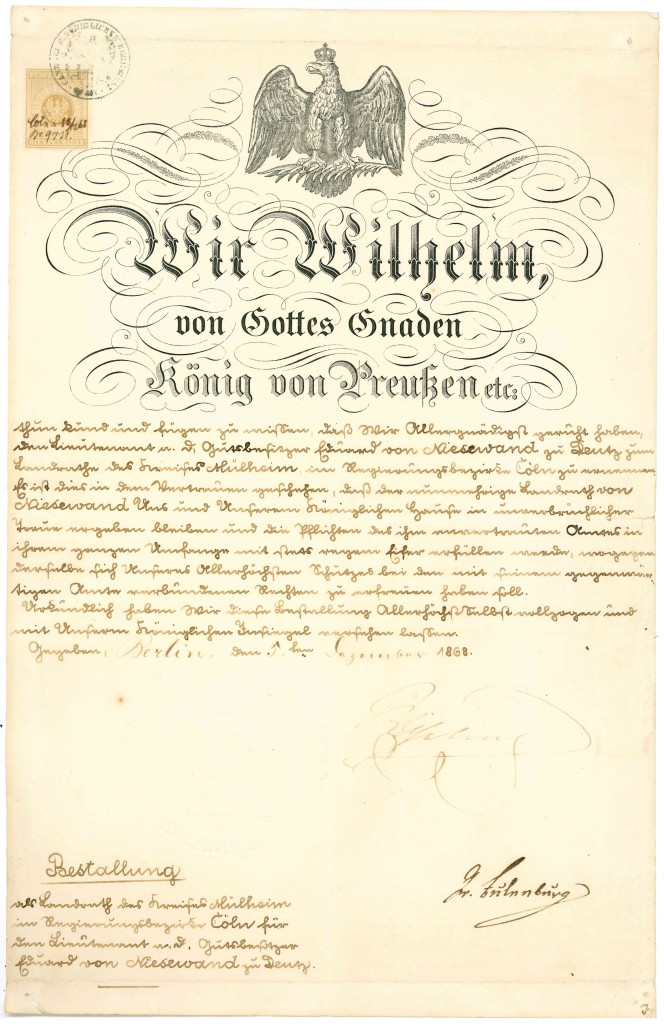 Cöln 12/12 68
No 973
Wir Wilhelm,
von Gottes Gnaden
König von Preußen etc:
thun kund und fügen zu wissen, daß Wir Allergnädigst geruht haben,
den Lieutenant a. d. Gutsbesitzer Eduard von Niesewand zu Deutz zum
Landrathe des Kreises Mülheim im Regierungsbezirke Cöln zu ernennen.
Es ist dies in dem Vertrauen geschehen, daß der nunmehrige Landrath von
Niesewand Uns und Unserem Königlichen Hause in unverbrüchlicher
Treue ergeben bleiben und die Pflichten des ihm anvertrauten Amtes in
ihrem ganzen Umfange mit stets regem Eifer erfüllen werde, wogegen
derselbe sich Unseres Allerhöchsten Schutzes bei den mit seinem gegenwär-
tigen Amte verbundenen Rechten zu erfreuen haben soll.
Urkundlich haben Wir diese Bestallung Allerhöchstselbst vollzogen und
mit Unserm Königlichen Insiegel versehen lassen.
Gegeben, Berlin, den 5. ten Dezember 1868.
Wilhelm
Bestallung
Gr. Eulenburg
als Landrath des Kreises Mülheim
im Regierungsbezirke Cöln für
den Lieutenant a. d. Gutsbesitzer
Eduard von Niesewand zu Deutz.